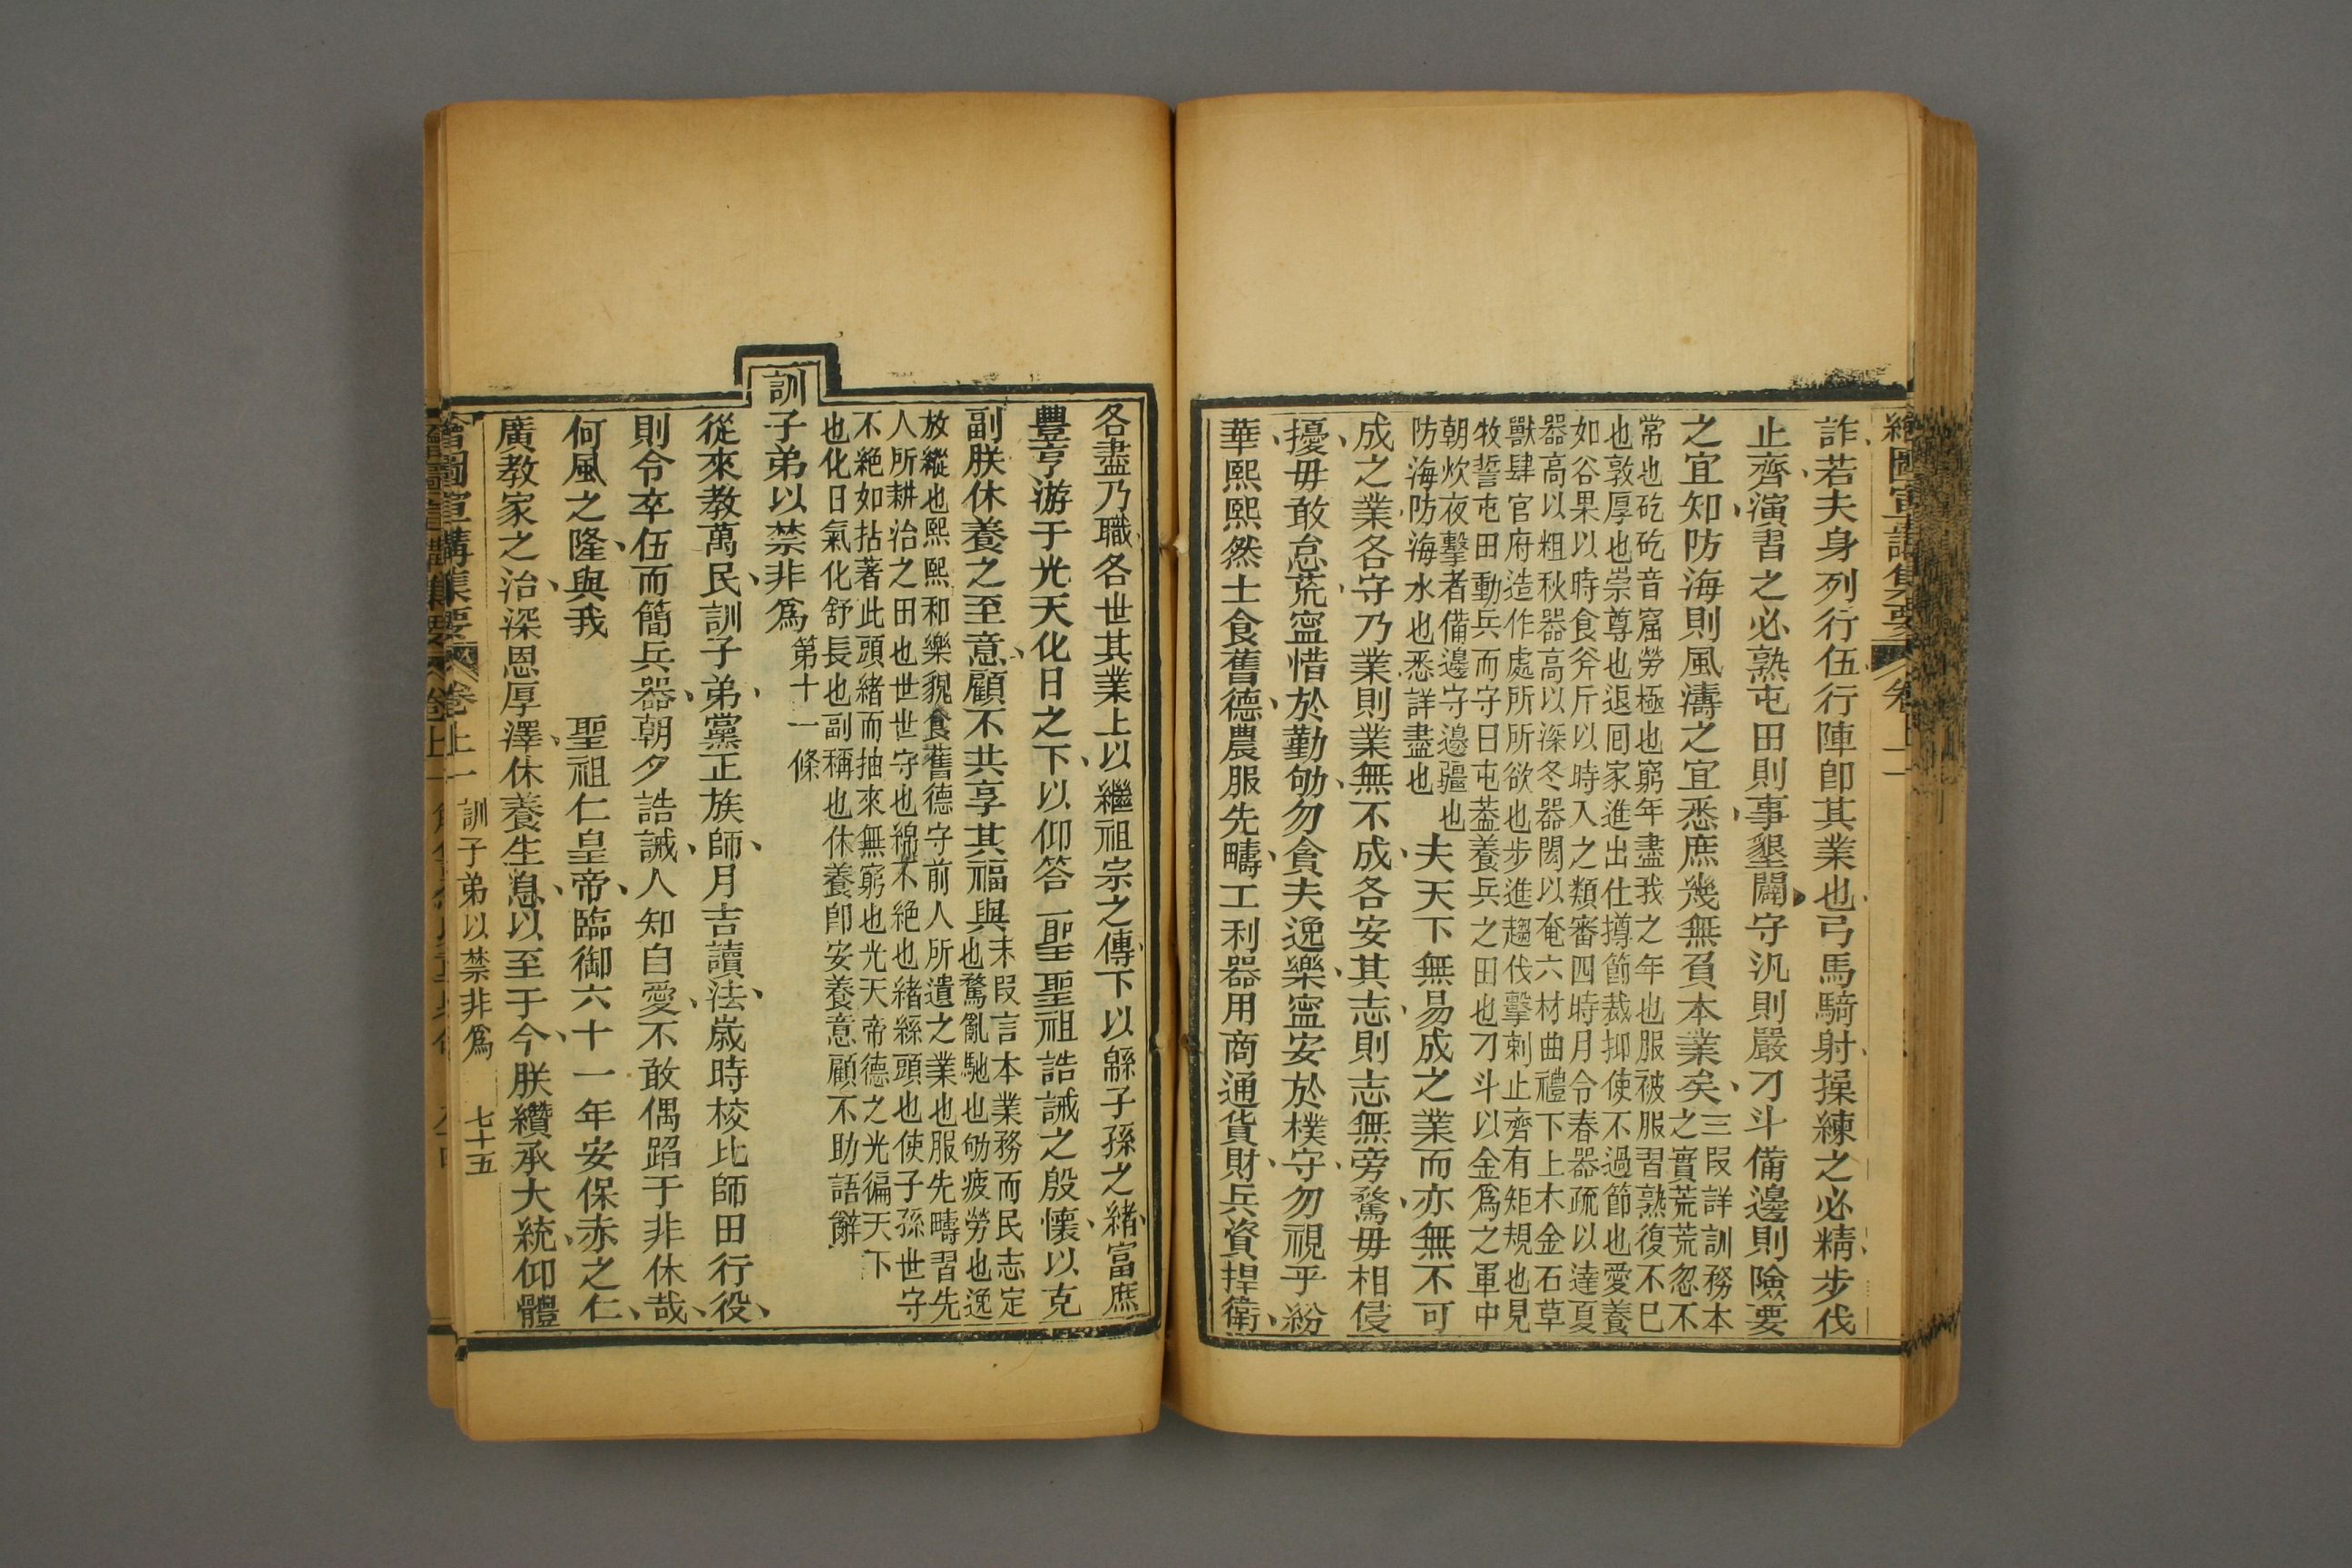 繪圖宣講集要 卷上一
詐若夫身列行伍行陣卽其業也弓馬騎射操練之必精步伐
止齊演習之必熟屯田則事墾闢守汛則嚴刁斗備邊則險要
之宜知防海則風濤之宜悉庶幾無負本業矣
三段詳訓務本
之實荒荒忽不
常也矻矻音窟勞極也窮年盡我之年也服被服習熟復不已
也敦厚也崇尊也退囘家進出仕撙節裁抑使不過節也愛養
如谷果以時食斧斤以時入之類審四時月令春器疏以達夏
器高以粗秋器高以深冬器閎以奄六材曲禮下上木金石草
獸肆官府造作處所所欲也步進趨伐擊刺止齊有矩規也見
牧誓屯田動兵而守日屯葢養兵之田也刁斗以金爲之軍中
朝炊夜擊者備邊守邊疆也
防海防海水也悉詳盡也
夫天下無易成之業而亦無不可
成之業各守乃業則業無不成各安其志則志無旁騖毋相侵
擾毋敢怠荒寍惜於勤劬勿貪夫逸樂寍安於樸守勿視乎紛
華熙熙然士食舊德農服先疇工利器用商通貨財兵資捍衛
各盡乃職各世其業上以繼祖宗之傳下以緜子孫之緒富庶
豐亨游于光天化日之下以仰答 聖聖祖誥誡之殷懷以克
副朕休養之至意顧不共享其福與
末段言本業務而民志定
也騖亂馳也劬疲勞也逸
放縱也熙熙和樂貌食舊德守前人所遺之業也服先疇習先
人所耕治之田也世世守也綿不絶也緒絲頭也使子孫世守
不絶如拈著此頭緒而抽來無窮也光天帝德之光徧天下
也化日氣化舒長也副稱也休養卽安養意顧不助語辭
訓子弟以禁非爲
第十一條
從來教萬民訓子弟黨正族師月吉讀法歲時校比師田行役
則令卒伍而簡兵器朝夕誥誡人知自愛不敢偶蹈于非休哉
何風之隆與我 聖祖仁皇帝臨御六十一年安保赤之仁
廣教家之治深恩厚澤休養生息以至于今朕纘承大統仰體
繪圖宣講集要 卷上一 訓子弟以禁非爲 七十五